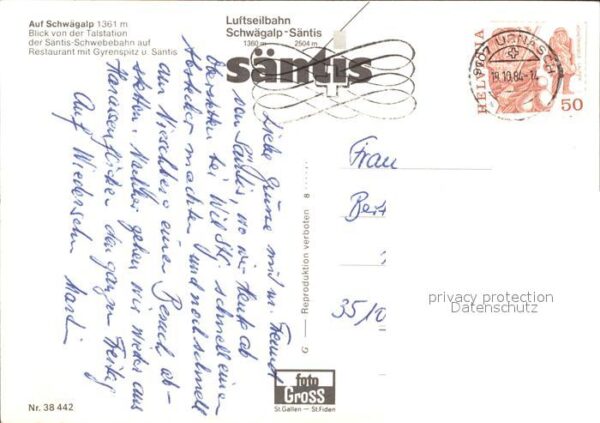 Auf Schwägalp 1361 m
Blick von der Talstation
der Säntis-Schwebebahn auf
Restaurant mit Gyrenspitz u. Säntis
Luftseilbahn
Schwägalp-Säntis
1360 m 2504 m
säntis
9107 URNÄSCH
19.10.84-14
HELVETIA
50
Liebe Grüsse mit m. Freund
von Säntis, wo wir heute ab
bei Wil SG. schnell einen
Abstecher machten und noch schnell
am einen Besuch ab-
statten. Nachher gehen wir wieder ans
den ganzen Freitag
Auf Wiedersehn
Frau
Ber
3510
G — Reproduktion verboten 8
foto
GROSS
St.Gallen — St.Fiden
Nr. 38 442
privacy protection
Datenschutz